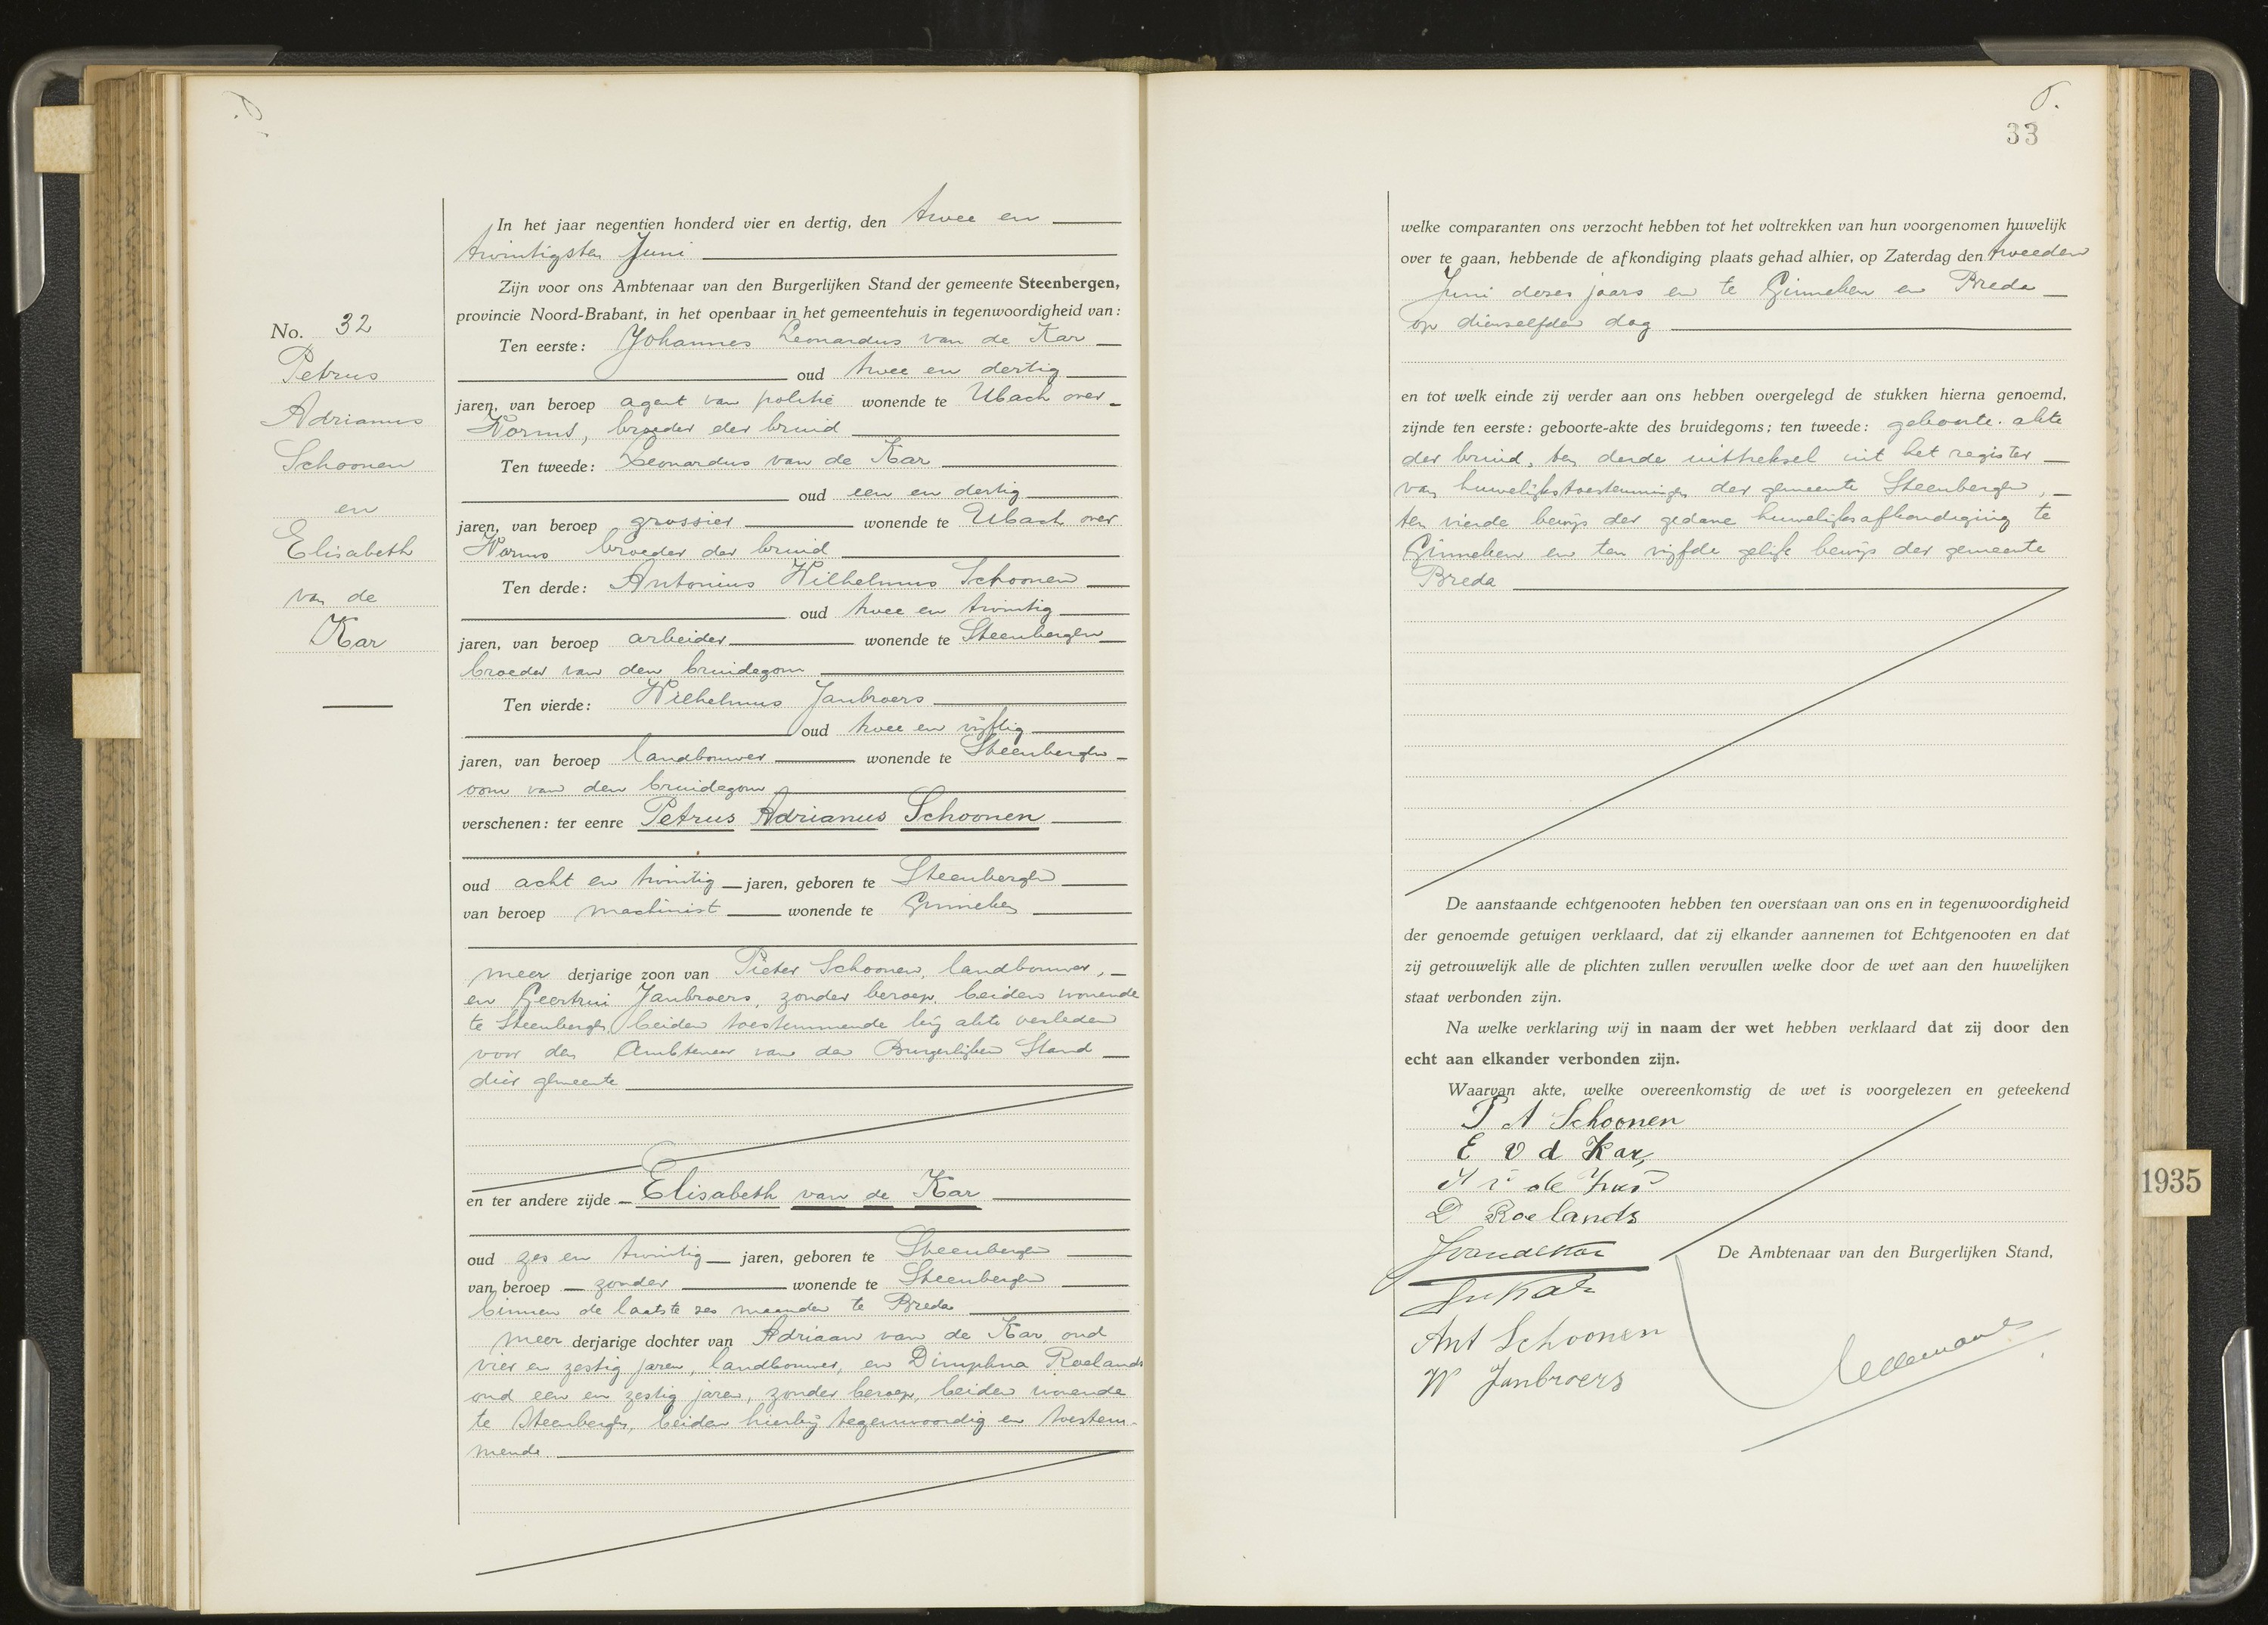 No. 32
Petrus
Adrianus
Schoonen
en
Elisabeth
van de
Kar
In het jaar negentien honderd vier en dertig, den twee en
twintigsten Juni
Zijn voor ons Ambtenaar van den Burgerlijken Stand der gemeente Steenbergen,
provincie Noord-Brabant, in het openbaar in het gemeentehuis in tegenwoordigheid van:
Ten eerste: Johannes Leonardus van de Kar
oud twee en dertig
jaren, van beroep agent van politie wonende te Ubach over
Worms, broeder der bruid
Ten tweede: Leonardus van de Kar
oud een en dertig
jaren, van beroep grossier wonende te Ubach over
Worms broeder der bruid
Ten derde: Antonius Wilhelmus Schoonen
oud twee en twintig
jaren, van beroep arbeider wonende te Steenbergen
broeder van den bruidegom
Ten vierde: Wilhelmus Janbroers
oud twee en vijftig
jaren, van beroep landbouwer wonende te Steenbergen
oom van den bruidegom
verschenen: ter eenre Petrus Adrianus Schoonen
oud acht en twintig jaren, geboren te Steenbergen
van beroep machinist wonende te Ginneken
meer derjarige zoon van Pieter Schoonen, landbouwer,
en Geertrui Janbroers, zonder beroep, beiden wonende
te Steenbergen, beiden toestemmende bij akte verleden
voor den Ambtenaar van den Burgerlijken Stand
dier gemeente
en ter andere zijde Elisabeth van de Kar
oud zes en twintig jaren, geboren te Steenbergen
van beroep zonder wonende te Steenbergen
binnen de laatste zes maanden te Breda
meer derjarige dochter van Adriaan van de Kar, oud
vier en zestig jaren, landbouwer, en Dimphna Roelands
oud een en zestig jaren, zonder beroep, beiden wonende
te Steenbergen, beiden hierbij tegenwoordig en toestem-
mende
33
welke comparanten ons verzocht hebben tot het voltrekken van hun voorgenomen huwelijk
over te gaan, hebbende de afkondiging plaats gehad alhier, op Zaterdag den tweeden
Juni dezes jaars en te Ginneken en Breda
op dienzelfden dag
en tot welk einde zij verder aan ons hebben overgelegd de stukken hierna genoemd,
zijnde ten eerste: geboorte-akte des bruidegoms; ten tweede: geboorte-akte
der bruid, ten derde uittreksel uit het register
van huwelijkstoestemmingen der gemeente Steenbergen,
ten vierde bewijs der gedane huwelijksafkondiging te
Ginneken en ten vijfde gelijk bewijs der gemeente
Breda
De aanstaande echtgenooten hebben ten overstaan van ons en in tegenwoordigheid
der genoemde getuigen verklaard, dat zij elkander aannemen tot Echtgenooten en dat
zij getrouwelijk alle de plichten zullen vervullen welke door de wet aan den huwelijken
staat verbonden zijn.
Na welke verklaring wij in naam der wet hebben verklaard dat zij door den
echt aan elkander verbonden zijn.
Waarvan akte, welke overeenkomstig de wet is voorgelezen en geteekend
P A Schoonen
E v d Kar,
D Roelands
JvandeKar
De Ambtenaar van den Burgerlijken Stand,
Ant Schoonen
W Janbroers
1935